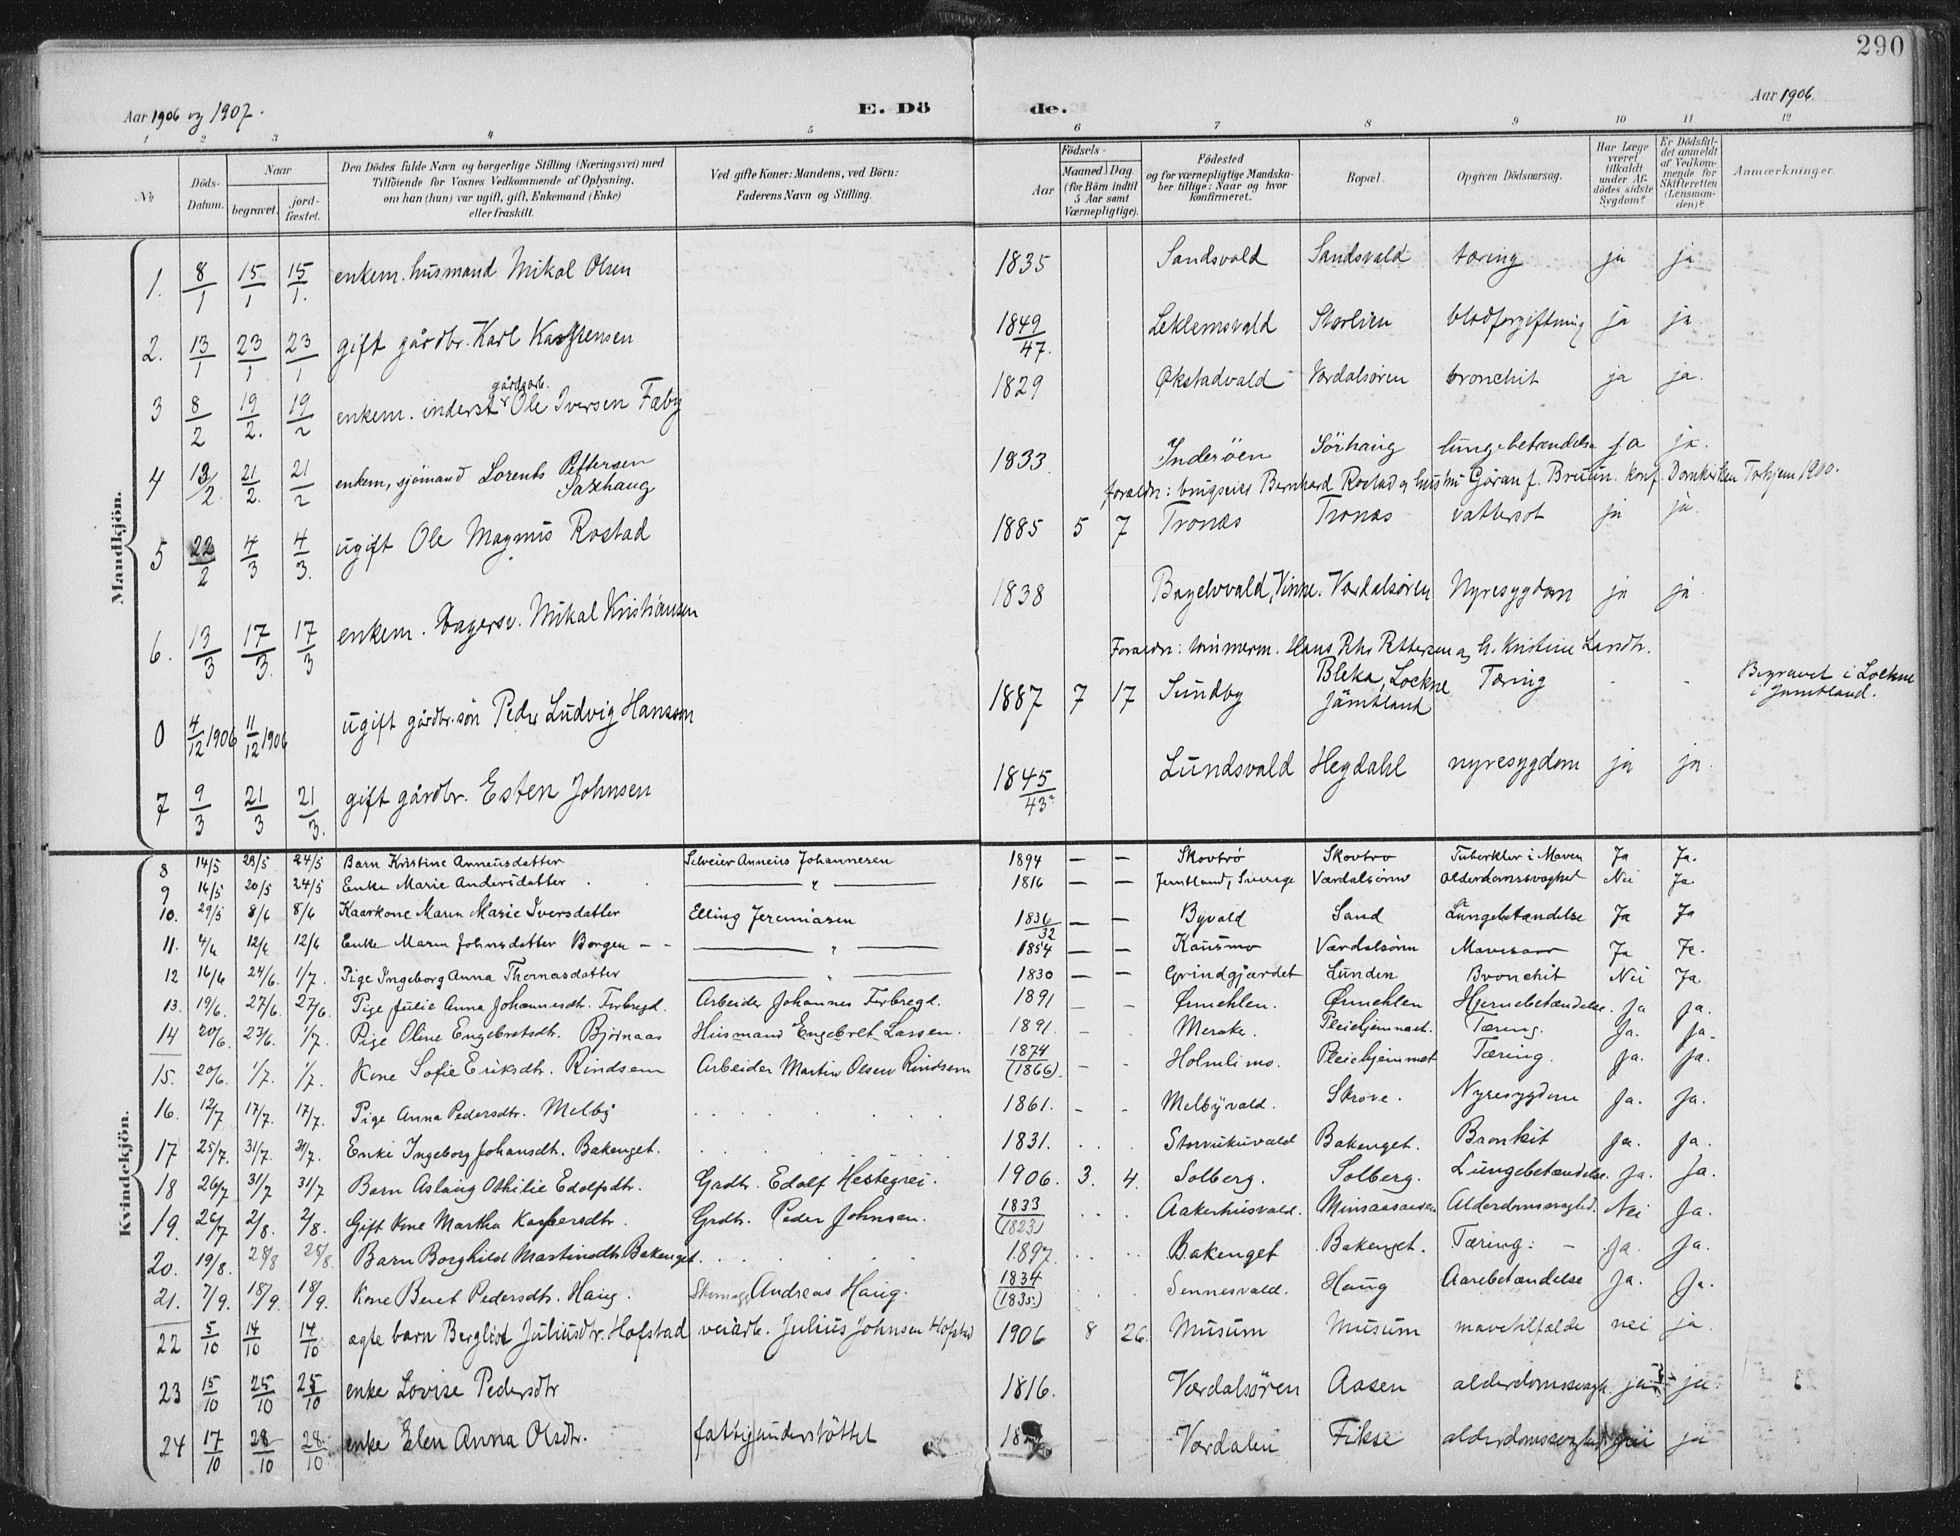 290
Aar 1906 og 1907.
E. Dö de.
Aar 1906.
1 2 3 4 5 6 7 8 9 10 11 12
No Döds-Datum. Naar begravet. jordfæstet. Den Dödes fulde Navn og borgerlige Stilling (Næringsvei) med Tilföiende for Voxnes Vedkommende af Oplysning, om han (hun) var ugift, gift, Enkemand (Enke) eller fraskilt. Ved gifte Koner: Mandens, ved Börn: Faderens Navn og Stilling. Födsels- Aar Maaned Dag (for Börn indtil 5 Aar samt Værnepligtige). Födested og for værnepligtige Mandskaber tillige: Naar og hvor konfirmeret. Bopæl. Opgiven Dödsaarsag. Har Læge været tilkaldt under Afdödes sidste Sygdom? Er Dödsfaldet anmeldt af Vedkommende for Skifteretten (Lensmanden)? Anmærkninger.
Mandkjön.
1. 8/1 15/1 15/1. enkem. husmand Mikal Olsen 1835 Sandsvald Sandsvald tæring ja ja
2. 13/1 23/1 23/1 gift gårdbr. Karl Karstensen 1849/47. Leklemsvald Storlien blodforgiftning ja ja
gårdarb.
3 8/2 19/2. 19/2 enkem. inderst Ole Iversen Fæby 1829 Økstadvald Værdalsören bronchit ja ja.
4 13/2 21/2. 21/2 enkem, sjömand Lorents Pettersen Saxhaug 1833 Inderöen Sörhaug lungebetændelse ja ja.
foraldr: brugseier Bernhard Rostad og hustru Gøran f. Bruun. konf. Domkirken Trhjem 1900.
5 22/2 4/3 4/3. ugift Ole Magnus Rostad 1885 5 7 Tronæs Tronæs vattersot ja ja.
6. 13/3 17/3. 17/3 enkem. Mikal Kristiansen 1838 Vinne. Værdalsören Nyresygdom ja ja.
Foraldr: tömmerm. Hans Ptr Pettersen og h. Kristine Landtr.
0 4/12 1906 11/12 1906 ugift gårdbr.sön Peder Ludvig Hanssen 1887 7 17 Sundby Bleka, Lockne Jämtland Tæring - - Begravet i Lockne i Jämtland.
7 9/3 21/3 21/3. gift gårdbr. Esten Johnsen 1845/43 Lundsvald Hegdahl nyresygdom ja ja.
Kvindekjön.
8 14/5 23/5 24/5 Barn Kristine Anneusdatter Selveier Anneus Johannesen 1894 — — Skovtrø Skovtro Tuberkler i Maven Ja Ja.
9 14/5 20/5 24/5 Enke Marie Andersdatter — " — 1816 — — Jemtland, Sverige Værdalsøren Alderdomssvaghet Nei Ja.
10. 29/5 8/6 8/6 Kaarkone Maren Marie Iversdatter Elling Jeremiasen 1836/32 — — Byvald Sand Lungebetændelse Ja Ja
11. 4/6 12/6 12/6 Enke Maren Johnsdatter Borgen - - — " — 1854 — — Kausmo Værdalsøren Mavesaar Ja Ja.
12 16/6 24/6. 1/7. Pige Ingeborg Anna Thomasdatter — " — 1830 — — Grindgjærdet Lunden Bronchit Nei Ja.
13. 19/6. 27/6. 27/6. Pige Julie Anna Johannesdtr. Forbregd. Arbeider Johannes Forbregd. 1891 - - Ørmehlen. Ørmehlen Hjernebetændelse. Ja Ja.
14 20/6. 23/6. 1/7. Pige Oline Engebretsdtr. Bjørnaas Husmand Engebret Larsen. 1891. - . Merake. Pleiehjemmet. Tæring. Ja. Ja.
15. 20/6. 1/7. 1/7. Kone Sofie Eriksdtr. Rindsem Arbeider Martin Olsen Rindsem 1874 (1866). - - Holmlimo. Pleiehjemmet Tæring. Ja. Ja.
16. 12/7 17/7. 17/7. Pige Anna Pedersdtr. Melby 1861. - - Melbyvald. Skrove. Nyresygdom Ja. Ja.
17 25/7. 31/7. 31/7. Enke Ingeborg Johansdtr. Bakenget. 1831. . . Storvukuvald Bakenget. Bronkit Ja. Ja.
18 26/7 31/7 31/7 Barn Aslaug Othilie Edolfsdtr. Grdbr. Edolf Hestegrei. 1906. 3. 4. Solberg. Solberg. Lungebetændelse. Ja. Ja.
19. 26/7 2/8. 2/8. Gift Kone Martha Kaspersdtr. Grdbr. Peder Johnsen. 1833 (1823) . . Aakerhusvald. Minsaasaasen Alderdomssvaghed. Nei Ja.
20. 19/8. 28/8 25/8. Barn Borghild Martinsdtr. Bakenget. 1897. . . Bakenget Bakenget. Tæring. - Ja. Ja.
21. 7/9. 18/9. 18/9. Kone Beret Pedersdtr. Haug. Skomager Andreas Haug. 1834 (1835) . . Sennesvald. Haug Aarebetændelse Ja. Ja.
22 5/10 14/10 14/10 ægte barn Bergliot Juliusdtr. Hofstad veiarb. Julius Johnsen Hofstad 1906 8 26. Musum Musum mavetilfælde nei ja.
23 15/10 25/10 25/10 enke Lovise Pedersdtr 1816. Værdalsören Aasen alderdomssvagh. ja ja.
24 17/10 28/10 28/10 enke Elen Anna Olsdtr. fattigunderstöttet Værdalen Fikse alderdomssvaghed ja